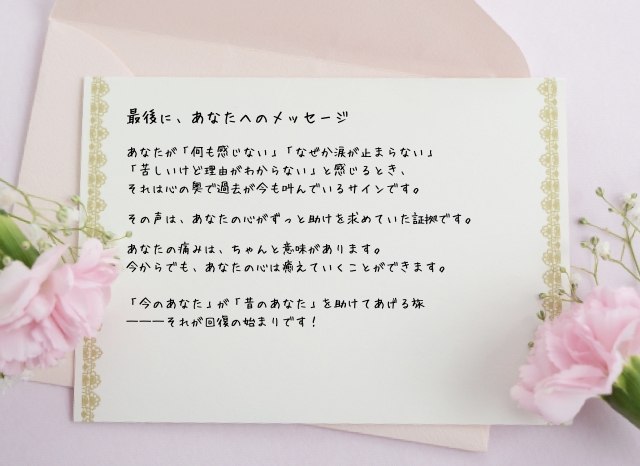 最後に、あなたへのメッセージ
あなたが「何も感じない」「なぜか涙が止まらない」
「苦しいけど理由がわからない」と感じるとき、
それは心の奥で過去が今も叫んでいるサインです。
その声は、あなたの心がずっと助けを求めていた証拠です。
あなたの痛みは、ちゃんと意味があります。
今からでも、あなたの心は癒えていくことができます。
「今のあなた」が「昔のあなた」を助けてあげる旅
―――それが回復の始まりです！